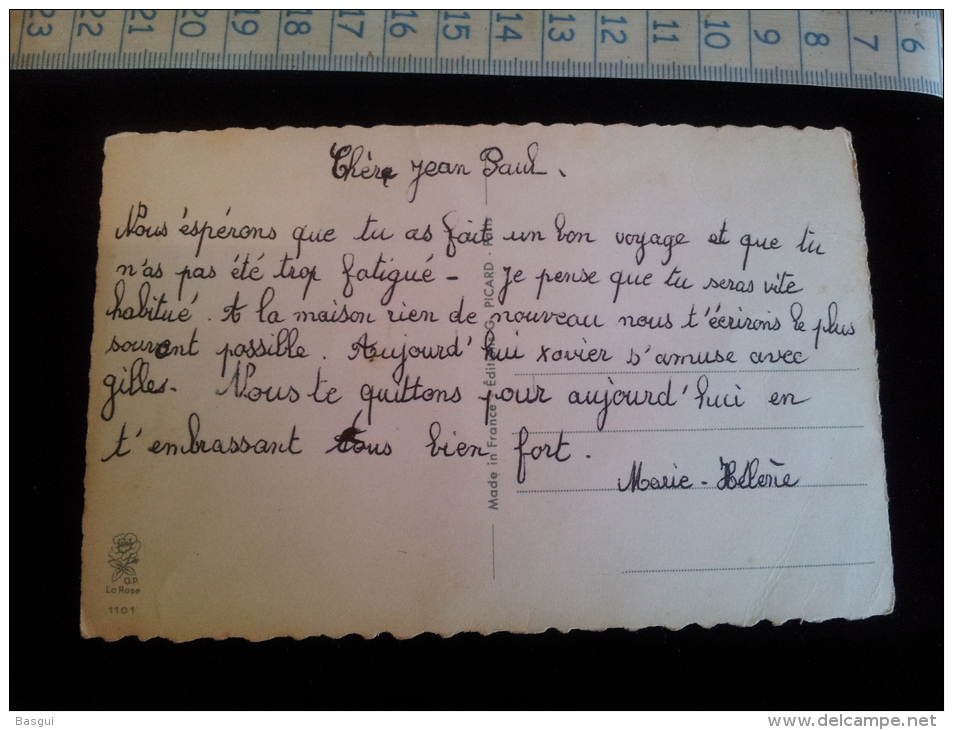 23 22 21 20 19 18 17 16 15 14 13 12 11 10 9 8 7 6
Chère Jean Paul.
Nous éspérons que tu as fait un bon voyage et que tu
n'as pas été trop fatigué - Je pense que tu seras vite
habitué. A la maison rien de nouveau nous t'écrirons le plus
souvent possible. Aujourd'hui xavier s'amuse avec
gilles. Nous te quittons pour aujourd'hui en
t'embrassant tous bien fort.
Marie-Hélène
Made in France - Édit. G. PICARD - Paris
G.P.
La Rose
1101
Basgui
www.delcampe.net